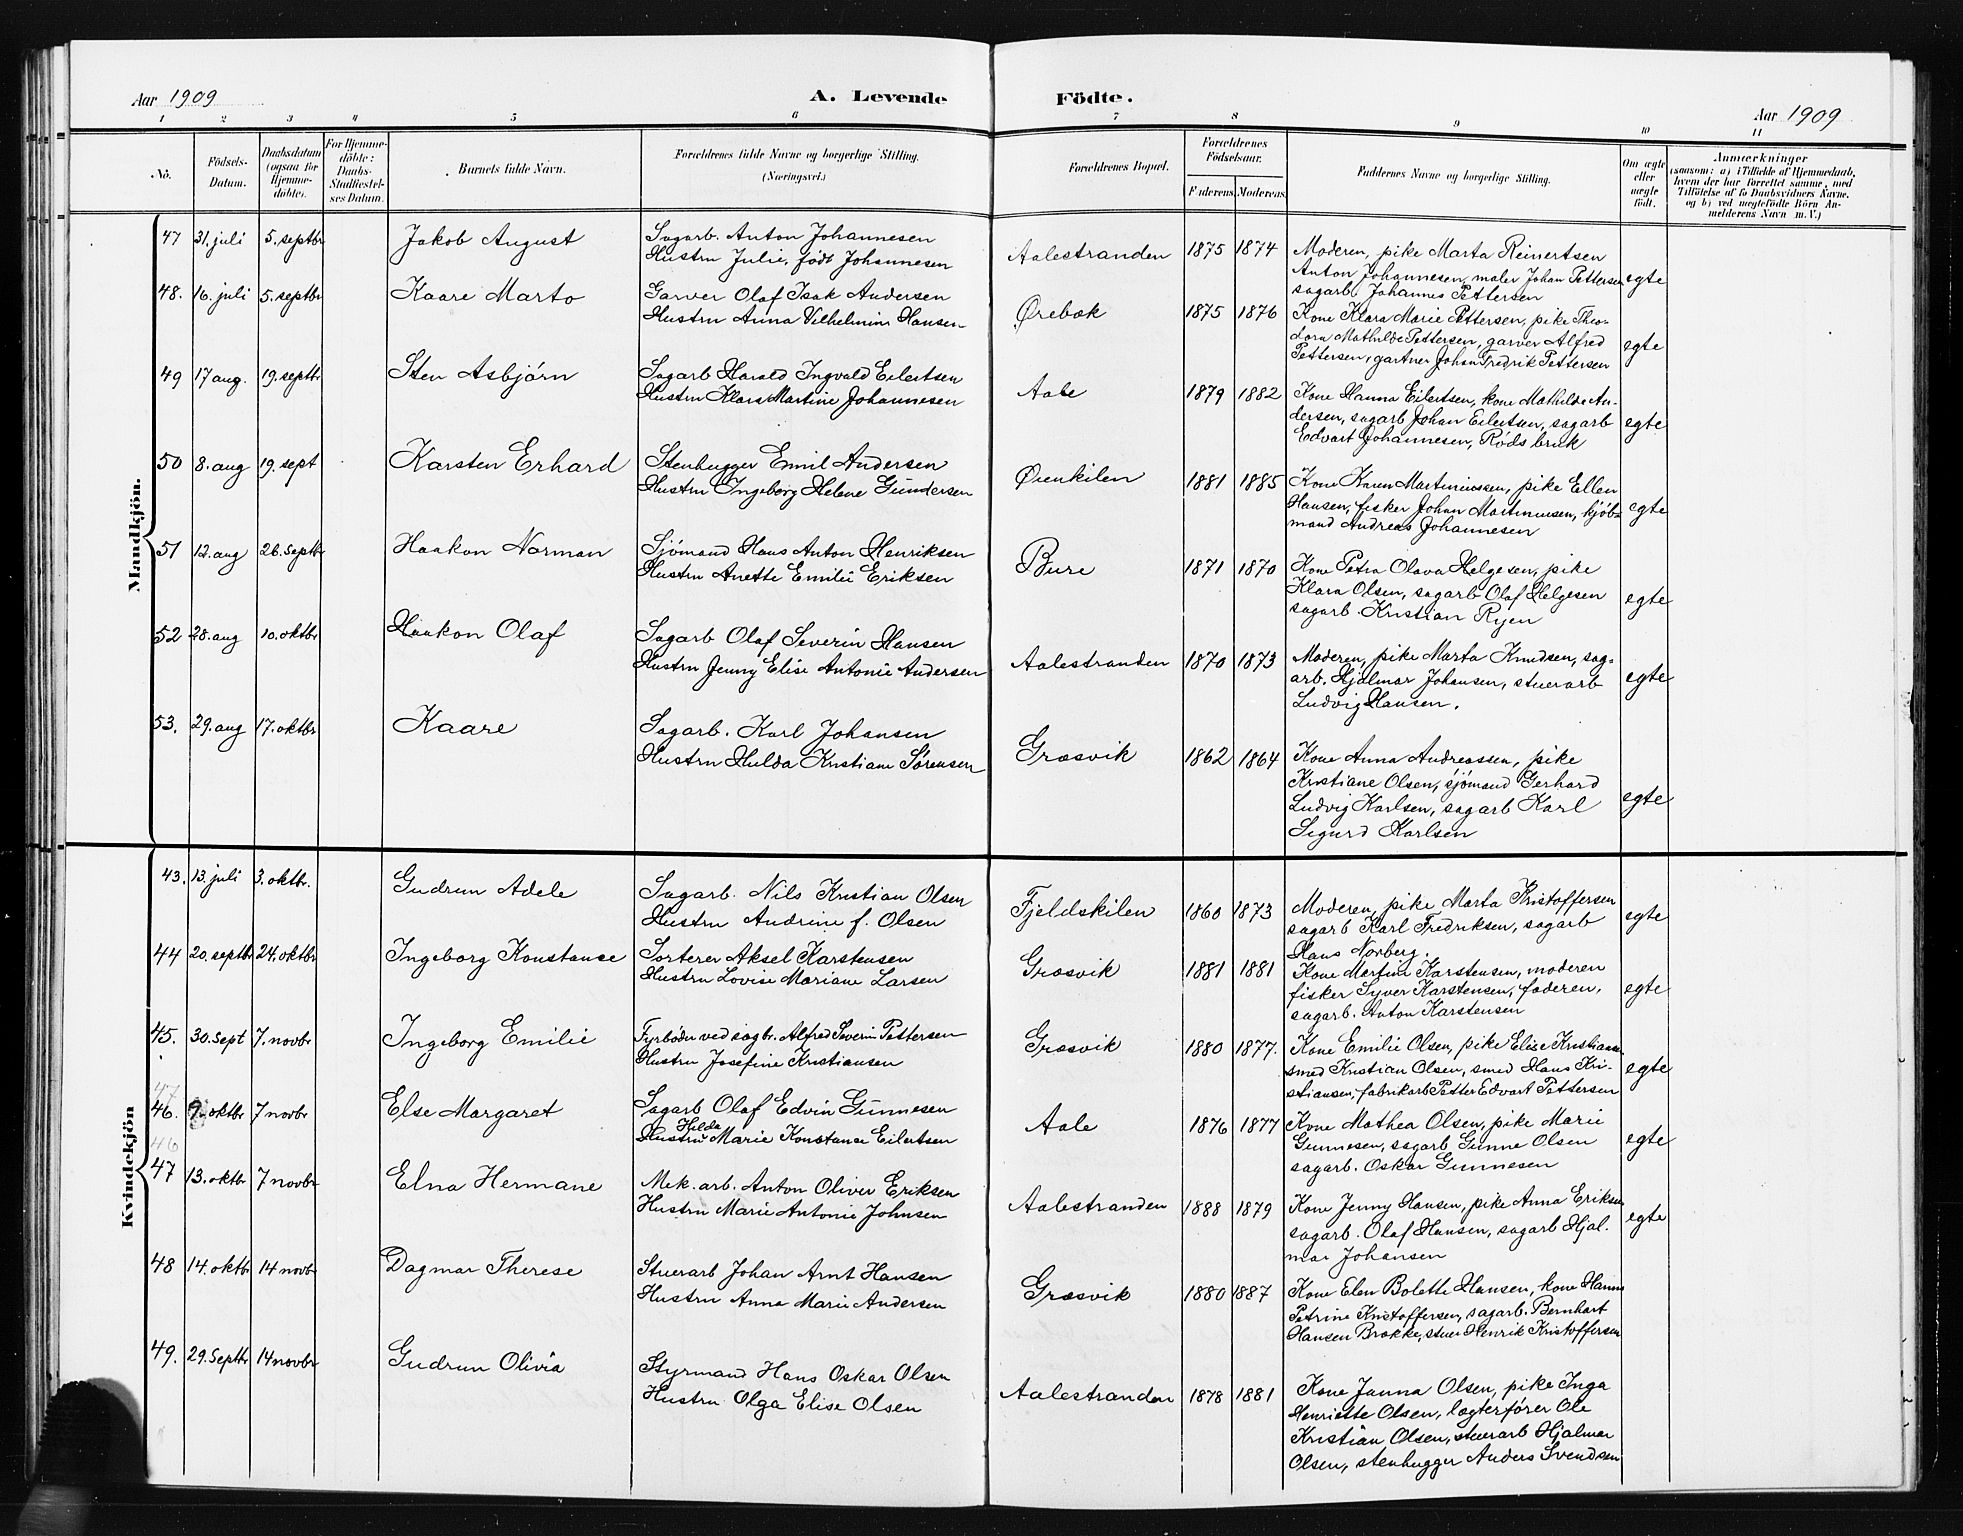 Aar 1909 A. Levende Födte. Aar 1909
1 2 3 4 5 6 7 8 9 10 11
No. Födsels-Datum. Daabsdatum (ogsaa for Hjemme-döbte). For Hjemme-döbte: Daabs-Stadfæstel-ses Datum. Barnets fulde Navn. Forældrenes fulde Navne og borgerlige Stilling. (Næringsvei.) Forældrenes Bopæl. Forældrenes Födselsaar. Faderens Moderens Faddernes Navne og borgerlige Stilling. Om ægte eller uægte födt. Anmærkninger (saasom: a) i Tilfælde af Hjemmedaab, hvem der har forrettet samme, med Tilföielse af to Daabsvidners Navne. og b) ved uægtefödte Börn An-melderens Navn m. V.)
Mandkjön.
47 31. juli 5. septbr Jakob August Sagarb. Anton Johannesen Aalestranden 1875 1874 Moderen, pike Marta Reinertsen
Hustru Julie, født Johannesen Anton Johannesen, maler Johan Pettersen egte
sagarb Johannes Pettersen
48. 16. juli 5. septbr Kaare Marto Garver Olaf Isak Andersen Ørebæk 1875 1876 Kone Klara Marie Pettersen, pike Theo-
Hustru Anna Vilhelmine Hansen dora Mathilde Pettersen, garver Alfred egte
Pettersen, gartner Johan Fredrik Pettersen
49 17 aug. 19. septbr Sten Asbjørn Sagarb Harald Ingvald Eilertsen Aale 1879 1882 Kone Hanna Eilertsen, kone Mathilde An-
Hustru Klara Martine Johannesen dersen, sagarb Johan Eilertsen, sagarb egte
Edvart Johannesen, Røds bruk
50 8. aug 19. sept Karsten Erhard Stenhugger Emil Andersen Øienkilen 1881 1885 Kone Karen Martiniussen, pike Ellen
Hustru Ingeborg Helene Gundersen Hansen, fisker Johan Martinussen, kjøb- egte
mand Andreas Johannesen
51 12. aug 26. septbr Haakon Norman Sjømand Hans Anton Henriksen Bure 1871 1870 Kone Petra Olava Helgesen, pike
Hustru Anette Emilie Eriksen Klara Olsen, sagarb Olaf Helgesen egte
sagarb. Kristian Ryen
52 28. aug 10. oktbr Haakon Olaf Sagarb Olaf Severin Hansen Aalestranden 1870 1873 Moderen, pike Marta Knudsen, sag-
Hustru Jenny Elise Antonie Andersen arb. Hjalmar Johansen, stuerarb egte
Ludvig Hansen.
53. 29. aug 17. oktbr Kaare Sagarb. Karl Johansen Græsvik 1862 1864 Kone Anna Andreassen, pike
Hustru Hulda Kristiane Sørensen Kristiane Olsen, sjømand Gerhard
Ludvig Karlsen, sagarb Karl egte
Sigurd Karlsen
Kvindekjön
43. 13. juli 3. oktbr. Gudrun Adele Sagarb. Nils Kristian Olsen Fjeldskilen 1860 1873 Moderen, pike Marta Kristoffersen
Hustru Andrine f. Olsen sagarb Karl Fredriksen, sagarb egte
Hans Norberg.
44 20. septbr 24. oktbr Ingeborg Konstanse Sorterer Aksel Karstensen Græsvik 1881 1881 Kone Martine Karstensen, moderen
Hustru Lovise Mariane Larsen fisker Syver Karstensen, faderen, egte
sagarb. Anton Karstensen
45. 30. sept 7. novbr Ingeborg Emilie Fyrbøder ved sagbr. Alfred Severin Pettersen Græsvik 1880 1877. Kone Emilie Olsen, pike Elise Kristiansen
Hustru Josefine Kristiansen smed Kristian Olsen, smed Hans Kri- egte
stiansen, fabrikarb Petter Edvart Pettersen
47
46. 9. oktbr 7 novbr Else Margaret Sagarb Olaf Edvin Gunnesen Aale 1876 1877 Kone Mathea Olsen, pike Marie
Hilda
Hustru Marie Konstanse Eilertsen Gunnesen, sagarb Gunne Olsen egte
sagarb. Oskar Gunnesen
46
47 13. oktbr 7 novbr Elna Hermane Mek. arb. Anton Oliver Eriksen Aalestranden 1888 1879 Kone Jenny Hansen, pike Anna Eriksen
Hustru Marie Antonie Johnsen sagarb. Olaf Hansen, sagarb Hjal- egte
mar Johansen
48 14. oktbr 14 novbr Dagmar Therese Stuerarb Johan Arnt Hansen Græsvik 1880 1887 Kone Elen Bolette Hansen, kone Hanna
Hustru Anna Marie Andersen Petrine Kristoffersen, sagarb. Bernhart
Hansen Brække, stuer Henrik Kristoffersen
49. 29. septbr 14 novbr Gudrun Olivia Styrmand Hans Oskar Olsen Aalestranden 1878 1881 Kone Janna Olsen, pike Inga
Hustru Olga Elise Olsen Henriette Olsen, lægterfører Ole
Kristian Olsen, stuerarb Hjalmar
Olsen, stenhugger Anders Svendsen